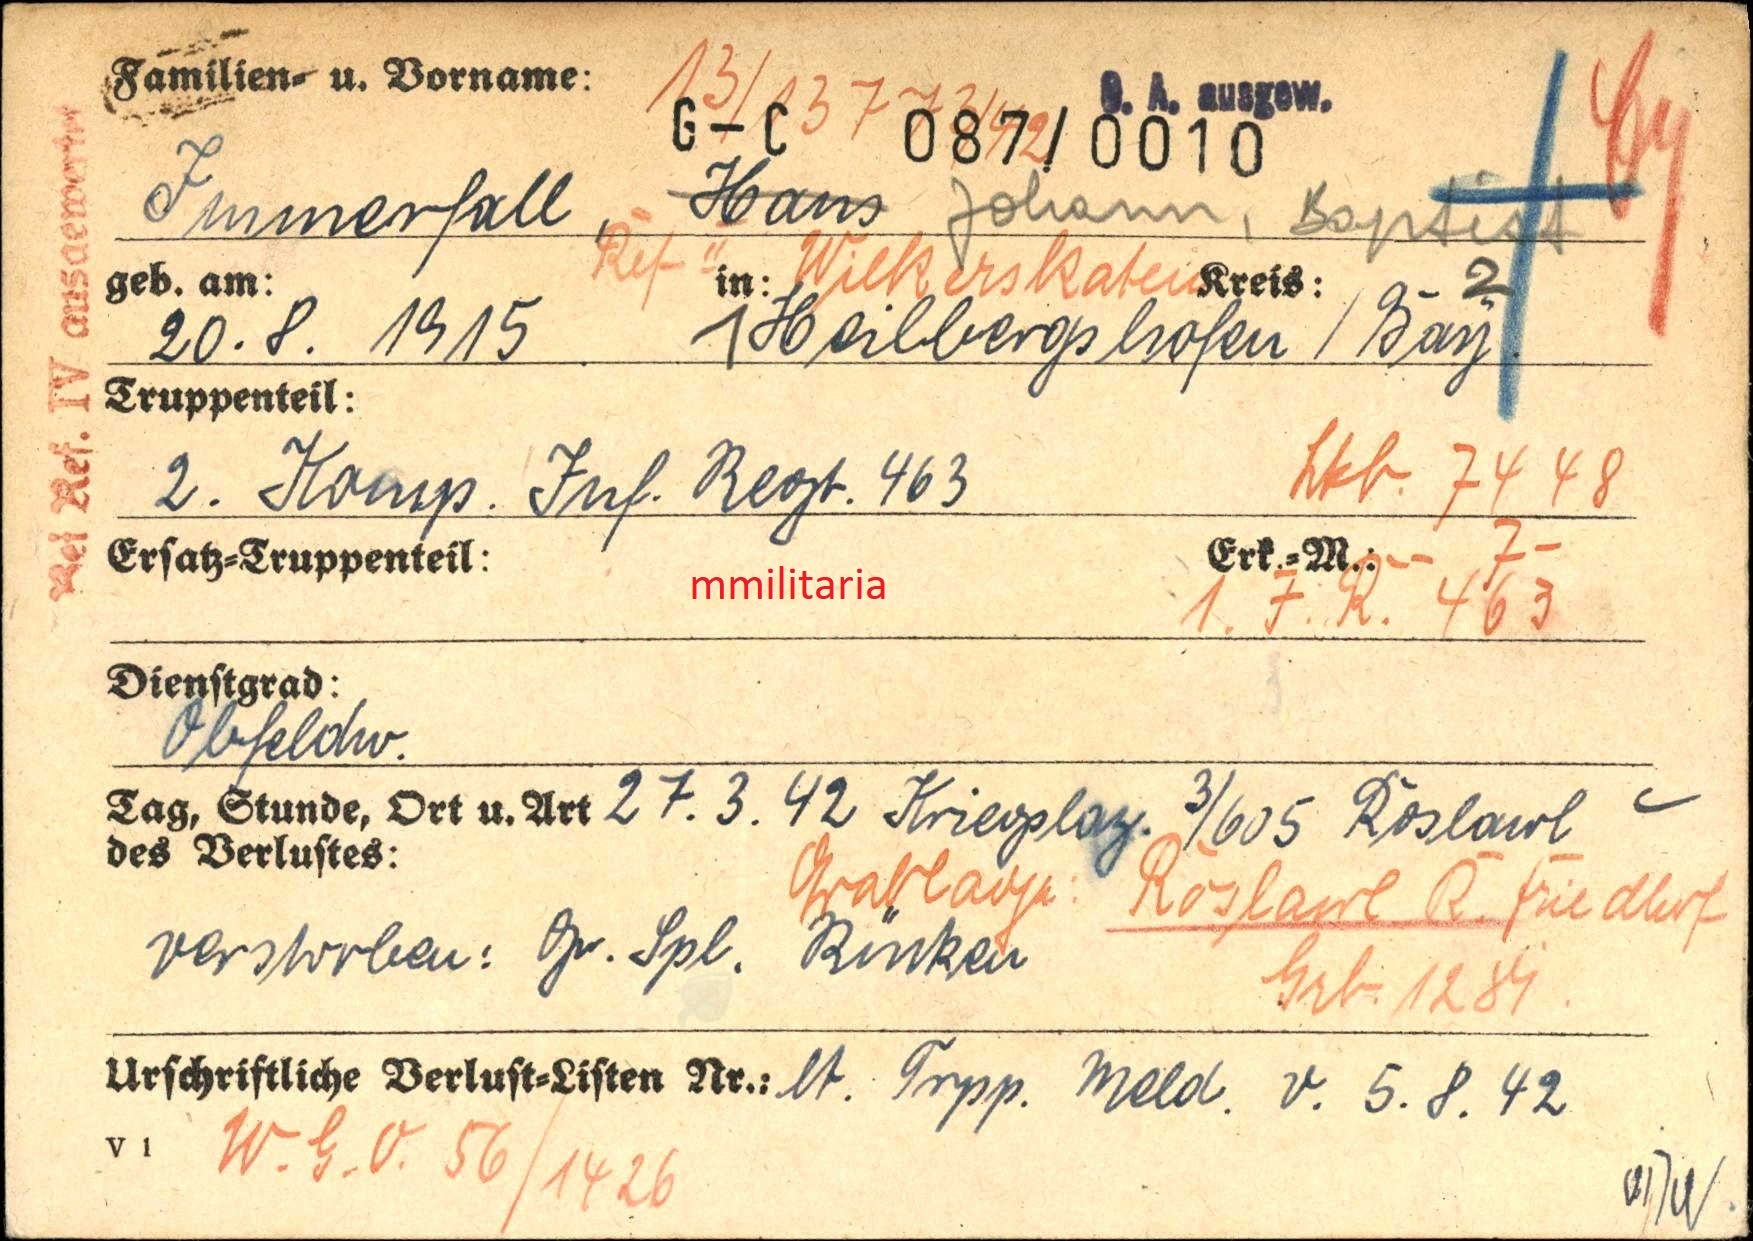 Familien- u. Vorname:
13/13773/42
O. A. ausgew.
G-C 087/0010
Immerfall, Hans Johann, Baptist
geb. am: in: Kreis: 2
20. 8. 1915 1 Heilbergshofen / Bay.
Truppenteil:
2. Komp. Inf. Regt. 463
Lkb. 7448
Ersatz-Truppenteil: Erk.-M.: -- 7-
1. I. R. 463
mmilitaria
Dienstgrad:
Obfeldw.
Tag, Stunde, Ort u. Art 27. 3. 42 Krieglaz. 3/605 Roslawl
des Verlustes:
Grablage: Roslawl R. Friedhof
verstorben: Gr. Spl. Rücken
Grb. 1284
Urschriftliche Verlust-Listen Nr.: lt. Trpp. Meld. v. 5. 8. 42
V 1 W. G. O. 56/1426
Bei Ref. IV ausgewertet